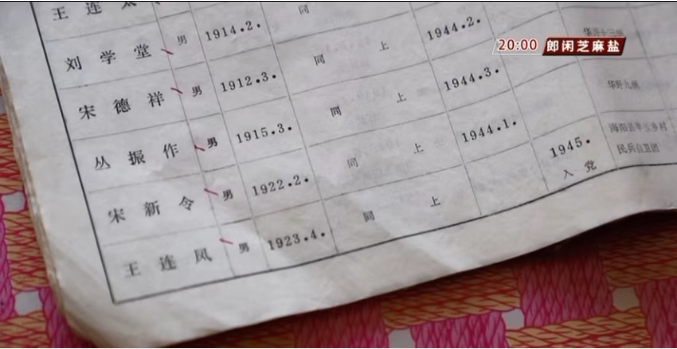 王 连
刘 学 堂 男 1914.2. 同
宋 德 祥 男 1912.3. 同 上 1944.2.
丛 振 作 男 1915.3. 同 上 1944.3.
宋 新 令 男 1922.2. 同 上 1944.1.
王 连 凤 男 1923.4. 同 上 1945.
入 党
民兵自卫团
20:00 郎闲芝麻盐